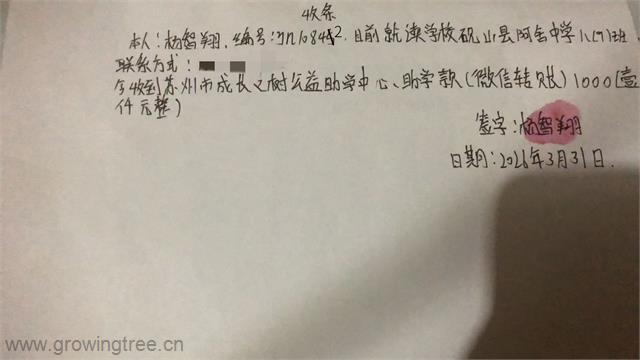 收条
本人:杨智翔,编号:YN10842,目前就读学校砚山县阿舍中学八(7)班,
联系方式:
今收到苏州市成长之树公益助学中心、助学款(微信转账)1000(壹
仟元整)
签字:杨智翔
日期:2026年3月31日.
www.growingtree.cn